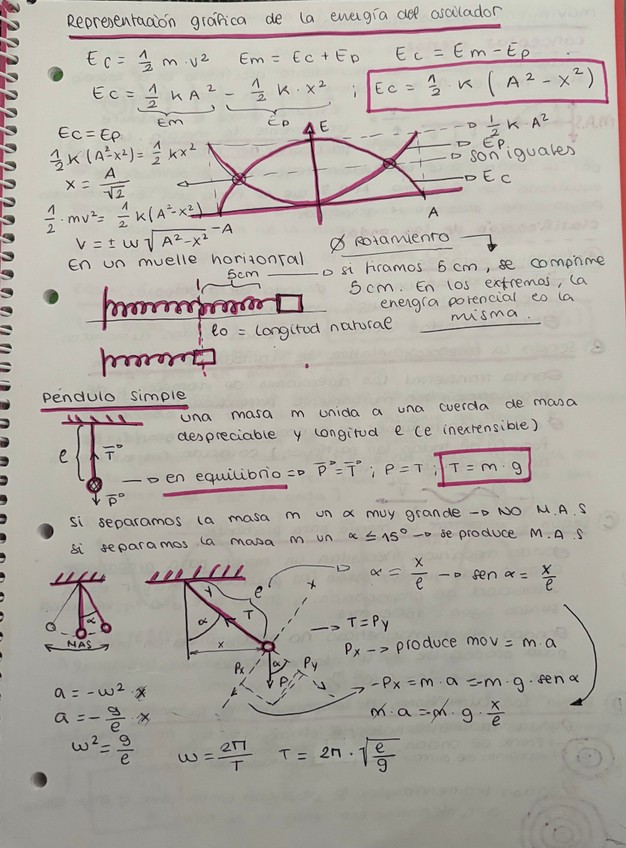 Representación gráfica de la energía del oscilador
Ec = 1/2 m · v² Em = Ec + Ep Ec = Em − Ep.
Ec = 1/2 K A² − 1/2 K · x² ; Ec = 1/2 · K (A² − x²)
Em Ep
Ec = Ep
1/2 K (A² − x²) = 1/2 K x²
x = A/√2
1/2 · mv² = 1/2 K (A² − x²)
v = ± ω √(A² − x²)
E
1/2 K · A²
Ep
son iguales
Ec
−A
A
En un muelle horizontal
∅ rozamiento
5cm → si tiramos 5 cm, se comprime
5 cm. En los extremos, la
energía potencial es la
misma.
lo = longitud natural
Péndulo simple
una masa m unida a una cuerda de masa
despreciable y longitud l (e inextensible)
l
T
P
→ en equilibrio => P = T ; P = T ; T = m · g
si separamos la masa m un α muy grande → NO M.A.S
si separamos la masa m un α ≤ 15º → se produce M.A.S
α
MAS
α
l
T
x
y
x
α
Px
Py
P
→ α = x/l → sen α = x/l
→ T = Py
Px → produce mov = m · a
−Px = m · a = −m · g · sen α
m · a = −m · g · x/l
a = −ω² · x
a = − g/l · x
ω² = g/l
ω = 2π/T T = 2π · √(l/g)